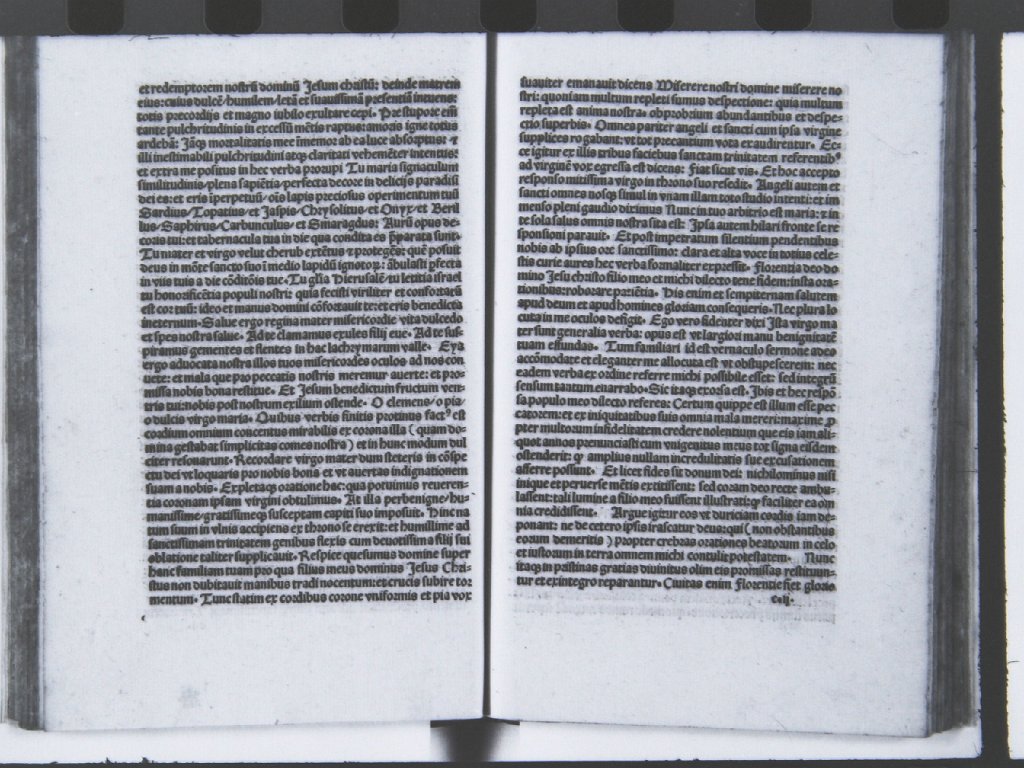 et redemptorem nostrū dominū Jesum christū: deinde matrem
eius: cuius dulcē/humilem/letā et suauissimā presentiā intuens:
totis precordijs et magno iubilo exultare cepi. Pre stupore em̄
tante pulchritudinis in excessū mētis raptus: amoris igne totus
ardebā: Jāqꝫ mortalitatis mee īmemor ab ea luce absorptus: ⁊
illi inestimabili pulchritudini atqꝫ claritati vehemēter intentus:
et extra me positus in hec verba prorupi Tu maria signaculum
similitudinis/plena sapiētia/perfecta decore in delicijs paradisi
dei es: et eris īperpetuū/ oīs lapis preciosus operimentum tuū
Sardius/Topatius/et Jaspis/Chrysolitus/et Onyx/et Beril
lus/Saphirus/Carbunculus/et Smaragdus: Aurū opus de-
coris tui: et tabernacula tua in die qua condita es p̄parata sunt.
Tu mater et virgo velut cherub extētus ⁊ protegēs: quē posuit
deus in mōte sancto suo ī medio lapidū ignitoꝝ: ābulasti pfecta
in viis tuis a die cōditōis tue. Tu glīa Hierusalē/tu letitia israel
tu honorificētia populi nostri: quia fecisti viriliter et confortatū
est cor tuū: ideo et manus domini cōfortauit te: et eris benedicta
ineternum. Salue ergo regina mater misericordie vita dulcedo
et spes nostra salue. Ad te clamamus exules filij eue. Ad te sus-
piramus gementes et flentes in hac lachrymarum valle. Eya
ergo aduocata nostra illos tuos misericordes oculos ad nos con
uerte: et mala que pro peccatis nostris meremur auerte: et pro-
missa nobis bona restitue. Et Jesum benedictum fructum ven-
tris tui: nobis post nostrum exilium ostende. O clemens/o pia/
o dulcis virgo maria. Quibus verbis finitis protinus fact⁹ est
cordium omnium concentus mirabilis ex corona illa (quam do-
mina gestabat simplicitas comes nostra) et in hunc modum dul
citer resonarunt. Recordare virgo mater dum steteris in cōspe
ctu dei vt loquaris pro nobis bona et vt auertas indignationem
suam a nobis. Expletaqꝫ oratione hac: qua potuimus reueren-
tia coronam ipsam virgini obtulimus. At illa perbenigne/hu-
manissime/gratissimeqꝫ susceptam capiti suo imposuit. Hinc na
tum suum in vlnis accipiens ex throno se erexit: et humillime ad
sanctissimam trinitatem genibus flexis cum deuotissima filij sui
oblatione taliter supplicauit. Respice quesumus domine super
hanc familiam tuam pro qua filius meus dominus Jesus Chri-
stus non dubitauit manibus tradi nocentum: et crucis subire tor
mentum. Tunc statim ex cordibus corone vniformis et pia vox
suauiter emanauit dicens Miserere nostri domine miserere no
stri: quoniam multum repleti sumus despectione: quia multum
repleta est anima nostra: obprobrium abundantibus et despe-
ctio superbis. Omnes pariter angeli et sancti cum ipsa virgine
supplices rogabant: vt tot precantium vota exaudirentur. Ec-
ce igitur ex illis tribus faciebus sanctam trinitatem referentib⁹
ad virginē vox egressa est dicens: Fiat sicut vis. Et hoc accepto
responso mitissima virgo in throno suo resedit. Angeli autem et
sancti omnes nosqꝫ simul in vnam illam toto studio intenti: et im
menso pleni gaudio diximus Nunc in tuo arbitrio est maria: ⁊ in
te sola salus omnis nostra sita est: Ipsa autem hilari fronte se re
sponsioni parauit. Et post impetratum silentium pendentibus
nobis ab ipsius ore sanctissimo: clara et alta voce in totius cele-
stis curie aures hec verba formaliter expressit. Florentia deo do
mino Jesu christo filio meo et michi dilecto tene fidem: insta ora-
tionibus: roborare patiētia. His enim et sempiternam salutem
apud deum et apud homines gloriam consequeris. Nec plura lo
cuta in me oculos defigit. Ego vero fidenter dixi Ista virgo ma
ter sunt generalia verba: opus est vt largiori manu benignitatē
tuam effundas. Tum familiari id est vernaculo sermone adeo
accōmodate et eleganter me allocuta est vt obstupescerem: nec
eadem verba ex ordine referre michi possibile esset: sed integrū
sensum tantum enarrabo. Sic itaqꝫ exorsa est. Ibis et hec respō
sa populo meo dilecto referes: Certum quippe est illum esse pec
catorem: et ex iniquitatibus suis omnia mala mereri: maxime ꝓ
pter multorum infidelitatem credere nolentium que eis iam ali-
quot annos prenunciasti cum vnigenitus meus tot signa eisdem
ostenderit: qꝫ amplius nullam incredulitatis sue excusationem
afferre possunt. Et licet fides sit donum dei: nichilominus nisi
inique et peruerse mētis extitissent: sed coram deo recte ambu-
lassent: tali lumine a filio meo fuissent illustrati: qꝫ faciliter ea om
nia credidissent. Argue igitur eos vt duriciam cordis iam de-
ponant: ne de cetero ipsis irascatur deus: qui (non obstantibus
eorum demeritis) propter crebras orationes beatorum in celo
et iustorum in terra omnem michi contulit potestatem. Nunc
itaqꝫ in pristinas gratias diuinitus olim eis promissas restituun-
tur et ex integro reparantur. Ciuitas enim Florentie fiet glorio